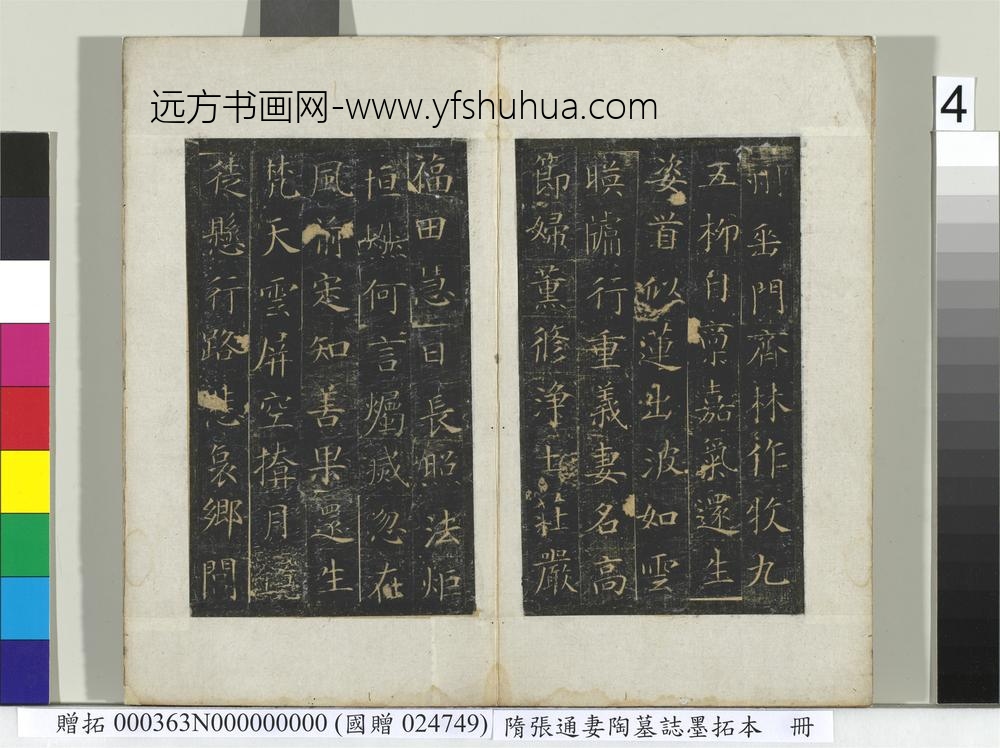 远方书画网-www.yfshuhua.com
4
門齊林作牧九
五柳自稟嘉氣還生
姿首似蓮出波如雲
暎牖行重義妻名高
節婦薰脩淨土莊嚴
福田慧日長照法炬
恒燃何言燭滅忽在
風前定知善果還生
梵天雲屏空揜月
徒懸行路悲哀鄉
贈拓 000363N000000000 (國贈 024749) 隋張通妻陶墓誌墨拓本 冊